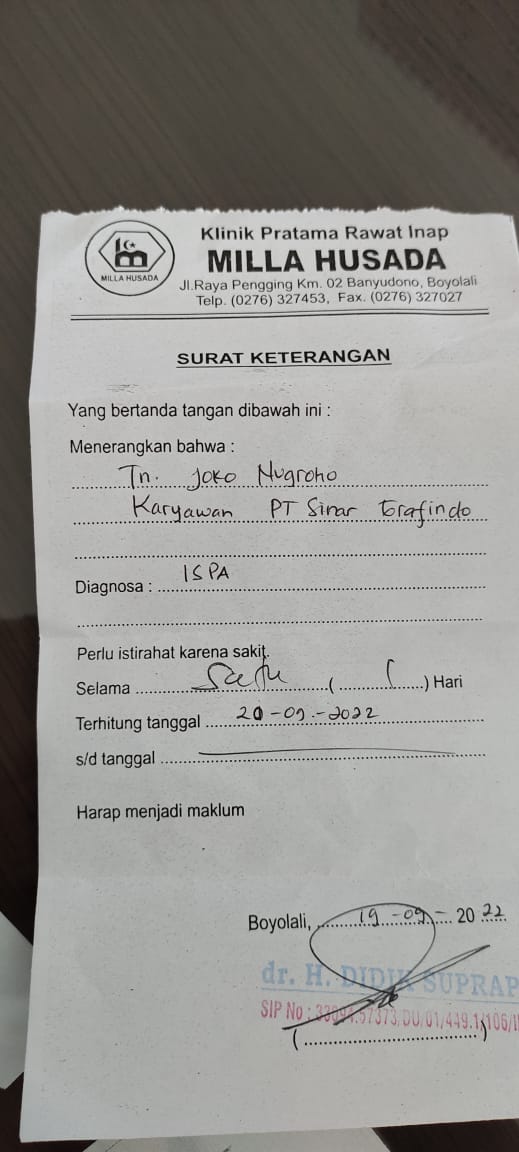 Klinik Pratama Rawat Inap
MILLA HUSADA
MILLA HUSADA
Jl.Raya Pengging Km. 02 Banyudono, Boyolali
Telp. (0276) 327453, Fax. (0276) 327027
SURAT KETERANGAN
Yang bertanda tangan dibawah ini :
Menerangkan bahwa :
Tn. Joko Nugroho
Karyawan PT Sinar Grafindo
Diagnosa : ISPA
Perlu istirahat karena sakit.
Selama Satu ( 1 ) Hari
Terhitung tanggal 20-09-2022
s/d tanggal
Harap menjadi maklum
Boyolali, 19-09- 2022
dr. H. DIDIK SUPRAP
SIP No : 449.1/106/